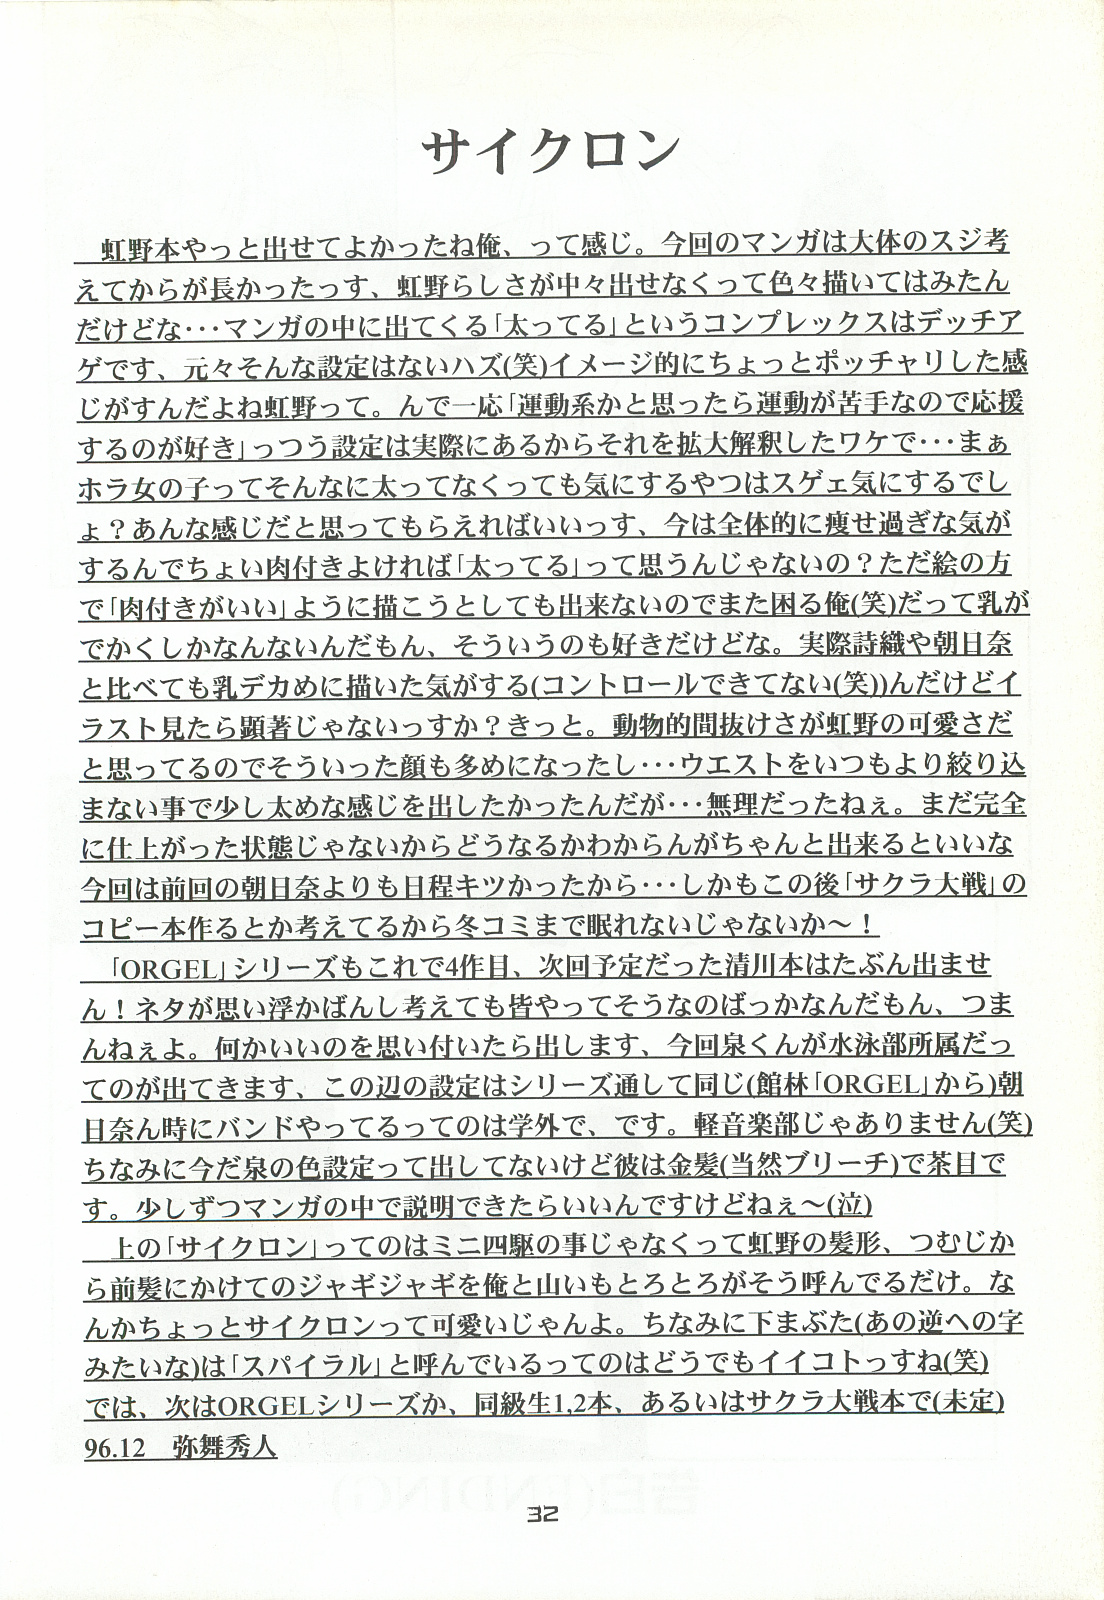 サイクロン
虹野本やっと出せてよかったね俺、って感じ。今回のマンガは大体のスジ考
えてからが長かったっす、虹野らしさが中々出せなくって色々描いてはみたん
だけどな･･･マンガの中に出てくる「太ってる」というコンプレックスはデッチア
ゲです、元々そんな設定はないハズ(笑)イメージ的にちょっとポッチャリした感
じがすんだよね虹野って。んで一応「運動系かと思ったら運動が苦手なので応援
するのが好き」っつう設定は実際にあるからそれを拡大解釈したワケで･･･まぁ
ホラ女の子ってそんなに太ってなくっても気にするやつはスゲェ気にするでし
ょ？あんな感じだと思ってもらえればいいっす、今は全体的に痩せ過ぎな気が
するんでちょい肉付きよければ「太ってる」って思うんじゃないの？ただ絵の方
で「肉付きがいい」ように描こうとしても出来ないのでまた困る俺(笑)だって乳が
でかくしかなんないんだもん、そういうのも好きだけどな。実際詩織や朝日奈
と比べても乳デカめに描いた気がする(コントロールできてない(笑))んだけどイ
ラスト見たら顕著じゃないっすか？きっと。動物的間抜けさが虹野の可愛さだ
と思ってるのでそういった顔も多めになったし･･･ウエストをいつもより絞り込
まない事で少し太めな感じを出したかったんだが･･･無理だったねぇ。まだ完全
に仕上がった状態じゃないからどうなるかわからんがちゃんと出来るといいな
今回は前回の朝日奈よりも日程キツかったから･･･しかもこの後「サクラ大戦」の
コピー本作るとか考えてるから冬コミまで眠れないじゃないか～！
「ORGEL」シリーズもこれで4作目、次回予定だった清川本はたぶん出ませ
ん！ネタが思い浮かばんし考えても皆やってそうなのばっかなんだもん、つま
んねぇよ。何かいいのを思い付いたら出します、今回泉くんが水泳部所属だっ
てのが出てきます、この辺の設定はシリーズ通して同じ(館林「ORGEL」から)朝
日奈ん時にバンドやってるってのは学外で、です。軽音楽部じゃありません(笑)
ちなみに今だ泉の色設定って出してないけど彼は金髪(当然ブリーチ)で茶目で
す。少しずつマンガの中で説明できたらいいんですけどねぇ～(泣)
上の「サイクロン」ってのはミニ四駆の事じゃなくって虹野の髪形、つむじか
ら前髪にかけてのジャギジャギを俺と山いもとろとろがそう呼んでるだけ。な
んかちょっとサイクロンって可愛いじゃんよ。ちなみに下まぶた(あの逆への字
みたいな)は「スパイラル」と呼んでいるってのはどうでもイイコトっすね(笑)
では、次はORGELシリーズか、同級生1,2本、あるいはサクラ大戦本で(未定)
96.12　弥舞秀人
告白(ENDING)
32